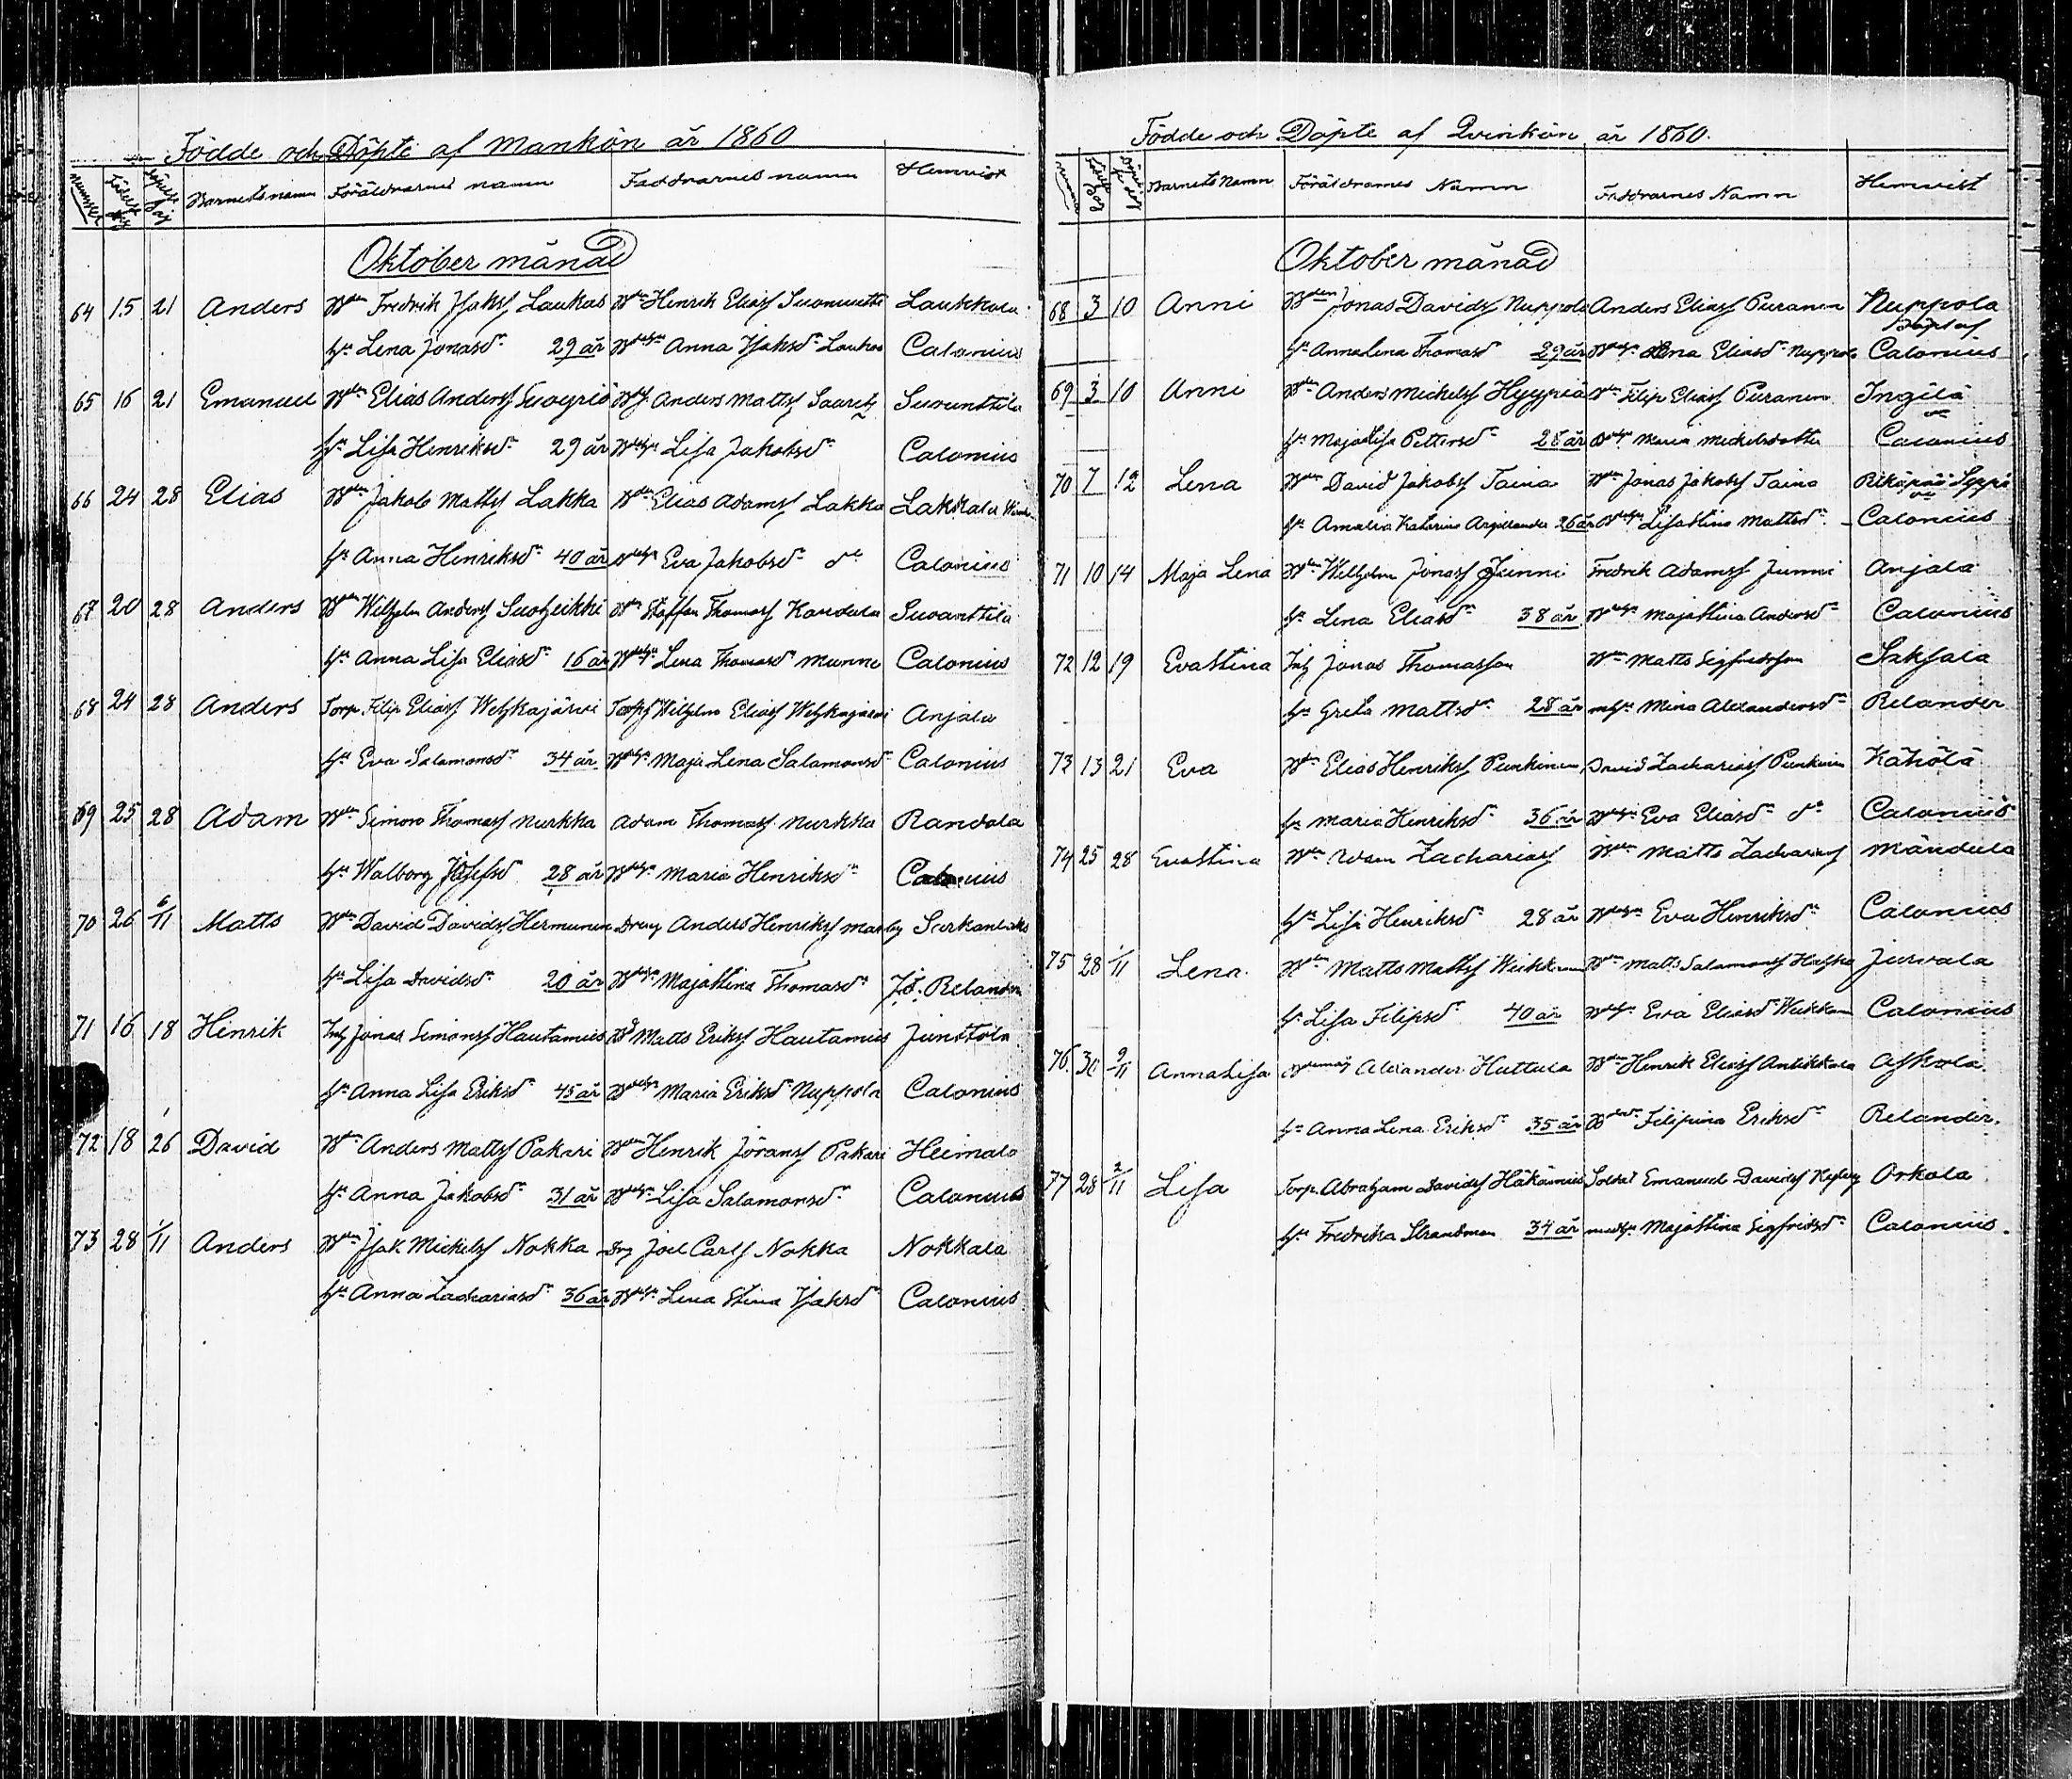 Födde och Döpte af Mankön år 1860
nummer Födelse dag Döpelse dag Barnets namn Föräldrarnes namn Faddrarnes namn Hemvist
Oktober månad
64 15 21 Anders Bdn Fredrik Isaksf Laukas Bdn Henrik Eliasf Laukkala
hu Lena Jonasdr 29 år Bdehu Anna Isaksdr Laukas Calonius
65 16 21 Emanuel Bdn Elias Andersf Bds Anders Mattsf Suvanttila
hu Lisa Henriksdr 29 år Bdehu Lisa Jakobsdr Calonius
66 24 28 Elias Bdn Jakob Mattsf Lakka Bdn Elias Adamsf Lakka Lakkala
hu Anna Henriksdr 40 år Bdehu Eva Jakobsdr do Calonius
67 20 28 Anders Bdn Wilhelm Andersf Suoheikki Bdn Staffan Thomasf Kandula Suvanttila
hu Anna Lisa Eliasdr 16 år Bdehu Lena Thomasdr Munne Calonius
68 24 28 Anders Torp. Filip Eliasf Wehkajärvi Torp. Wilhelm Eliasf Wehkajärvi Anjala
hu Eva Salamonsdr 34 år Bdehu Maja Lena Salamonsdr Calonius
69 25 28 Adam Bdn Simon Thomasf Nurkka Adam Thomasf Nurkka Randala
hu Walborg Josefsd 28 år Bdehu Maria Henriksdr Calonius
70 26 6/11 Matts Bdn David Davidsf Hermunen Dreng Anders Henriksf
hu Lisa Davidsdr 20 år Bdehu Majastina Thomasdr Relander
71 16 18 Henrik Inh Jonas Simonsf Hautamies Bds Matts Eriksf Hautamies Junttola
hu Anna Lisa Eriksdr 45 år Bdehu Maria Eriksdr Nuppola Calonius
72 18 26 David Bdn Anders Mattsf Pakari Bdn Henrik Göransf Pakari Heimala
hu Anna Jakobsdr 31 år Bdehu Lisa Salamonsdr Calonius
73 28 1/11 Anders Bdn Isak Mickelsf Nokka Drg Joel Carlsf Nokka Nokkala
hu Anna Zachariasdr 36 år Bdehu Lena Stina Isaksdr Calonius
Födde och Döpte af Qvinkön år 1860.
nummer Födelse dag Döpelse dag Barnets Namn Föräldrarnes Namn Faddrarnes Namn Hemvist
Oktober månad
68 3 10 Anni Bden Jonas Davidsf Nuppola Anders Eliasf Puranen Nuppola
Döpt af
hu Anna Lena Thomasdr 29 år Bdehu Lena Eliasdr Nuppola Calonius
69 3 10 Anni Bdn Anders Mickelsf Hyypiä Bdn Filip Eliasf Puranen Ingilä
hu Maja Lisa Pettersdr 28 år Bdehu Maria Mickelsdotter Calonius
70 7 12 Lena Bdn David Jakobsf Taina Bdn Jonas Jakobsf Taina Riksänä Seppä
hu Amalia Katarina Argillander 26 år Bdehu Lisastina Mattsdr Calonius
71 10 14 Maja Lena Bdn Wilhelm Jonasf Junni Fredrik Adamsf Junni Anjala
hu Lena Eliasdr 38 år Bdehu Majastina Andersdr Calonius
72 12 19 Evastina Inh Jonas Thomasson Bdn Matts Sigfridsson Saksala
hu Greta Mattsdr 28 år mhu Mina Alexandersdr Relander
73 13 21 Eva Bdn Elias Henriksf Punkinen David Zachariasf Punkinen Kahölä
hu Maria Henriksdr 36 år Bdehu Eva Eliasdr do Calonius
74 25 28 Evastina Bdn Adam Zachariasf Bdn Matts Zachariasf Mändula
hu Lisa Henriksdr 28 år Bdehu Eva Henriksdr Calonius
75 28 1/11 Lena Bdn Matts Mattsf Bdn Matts Salamonsf Jurvala
hu Lisa Filipsdr 40 år Bdehu Eva Eliasdr Calonius
76 30 9/11 Anna Lisa Alexander Huttula Bdn Henrik Eliasf Anttikkala Askola
hu Anna Lena Eriksdr 35 år Filipina Eriksdr Relander.
77 28 2/11 Lisa Torp. Abraham Davidsf Häkämies Soldat Emanuel Davidsf Orkola
hu Fredrika Strandman 34 år Majastina Sigfridsdr Calonius.